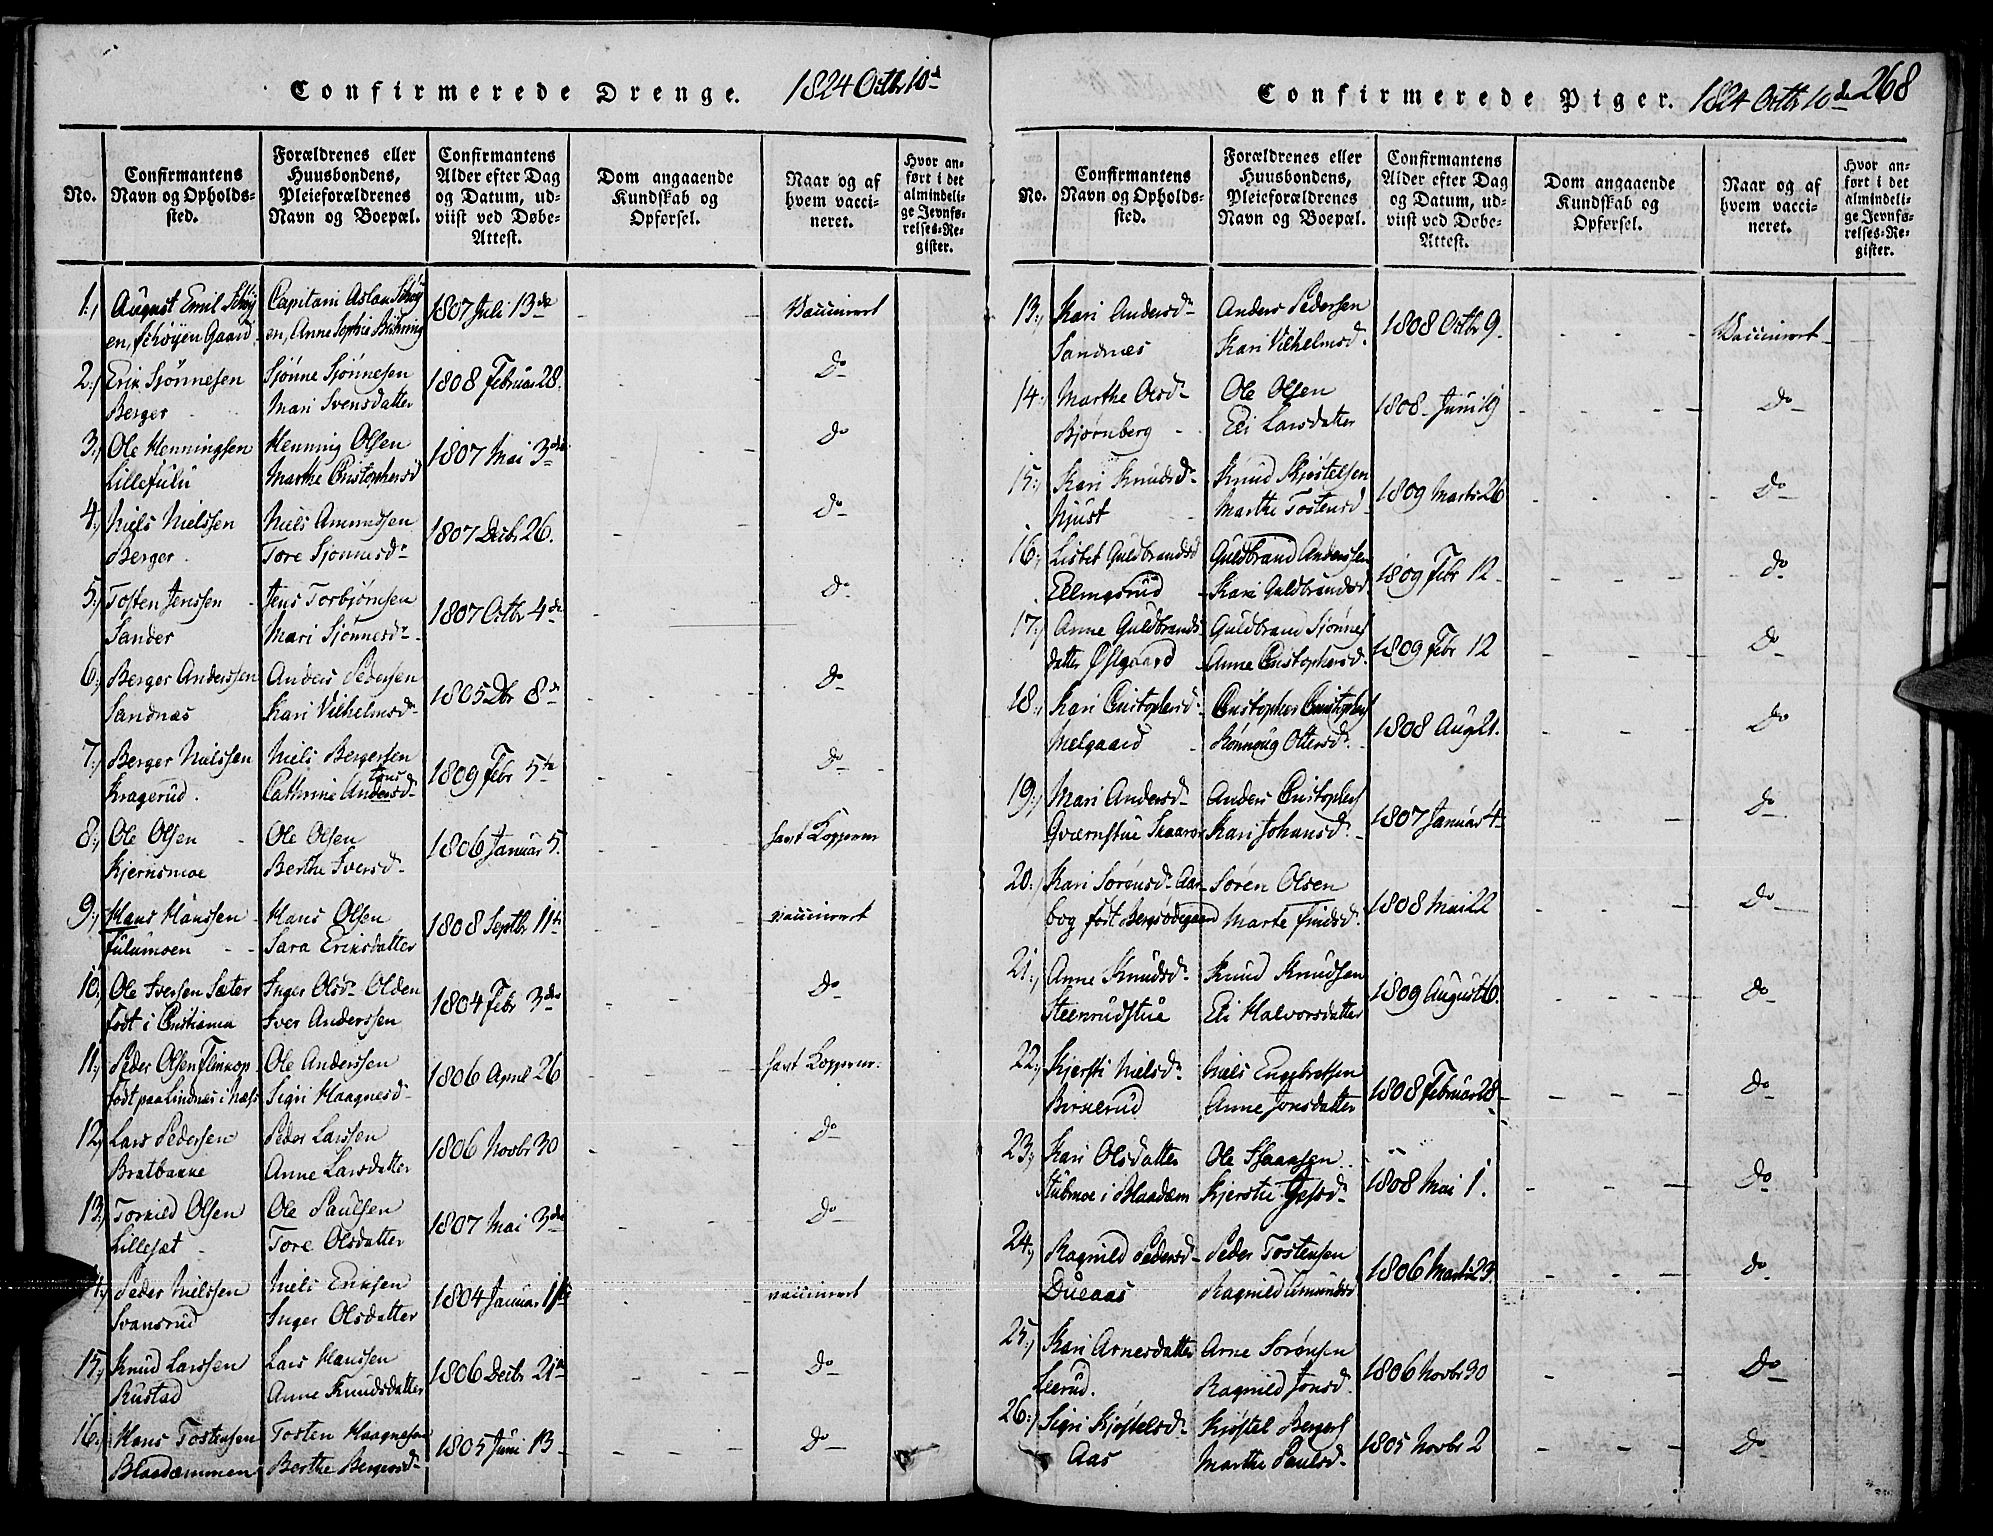 Confirmerede Drenge. 1824 Octbr 10d
No.
Confirmantens Navn og Opholdssted.
Forældrenes eller Huusbondens, Pleieforældrenes Navn og Boepæl.
Confirmantens Alder efter Dag og Datum, udviist ved Døbe-Attest.
Dom angaaende Kundskab og Opførsel.
Naar og af hvem vaccineret.
Hvor anført i det almindelige Jevnførelses-Register.
1.) August Emil Schøy Capitain Aslan Schøy 1807 Juli 13de Vaccineret
en, Schøyen Gaard en, Anne Sophie
2.) Erik Sjønnesen Sjønne Sjønnesen 1808 Februar 28. Do
Berger Mari Svensdatter
3.) Ole Henningsen Henning Olsen 1807 Mai 3de Do
Lillefulu Marthe Christophersd
4.) Niels Nielssen Niels Amundsen 1807 Decbr 26. Do
Berger Tore Sjønnesdr
5.) Tosten Jenssen Jens Torbjørnsen 1807 Octbr 4de Do
Sander Mari Sjønnesdr
6.) Berger Anderssen Anders Pedersen 1805 Dbr 8de Do
Sandnæs Kari Vilhelmsdr
7.) Berger Nielssen Niels Bergersen 1809 Febr 5te Do
Kragerud. Cathrine Andersd
8.) Ole Olsen Ole Olsen 1806 Januar 5. havt Kopperne
Kjernsmoe Berthe Iversd
9.) Hans Hanssen Hans Olsen 1808 Septbr 11te vaccineret
Fulumoen Sara Eriksdatter
10.) Ole Iversen Sæter Inger Olsdr Olden 1804 Febr 3de Do
født i Christiania Iver Anderssen
11.) Peder Olsen Ole Anderssen 1806 April 26 havt Kopperne.
født paa Lindnæs i Næs Sigri Haagnesd
12.) Lars Pedersen Peder Larssen 1806 Novbr 30 Do
Bratbakke Anne Larsdatter
13.) Torkild Olsen Ole Paulsen 1807 Mai 3de Do
Lillesæt Tore Olsdatter
14.) Peder Nielssen Niels Eriksen 1804 Januar 1ste vaccineret
Svansrud Inger Olsdatter
15.) Knud Larssen Lars Hanssen 1806 Decbr 21de Do
Rustad Anne Knudsdatter
16.) Hans Tostensen Tosten Haagnesen 1805 Juni 13 Do
Blaadæmmen Berthe Bergersd
Confirmerede Piger. 1824 Octbr 10de 268
No.
Confirmantens Navn og Opholdssted.
Forældrenes eller Huusbondens, Pleieforældrenes Navn og Boepæl.
Confirmantens Alder efter Dag og Datum, udviist ved Døbe-Attest.
Dom angaaende Kundskab og Opførsel.
Naar og af hvem vaccineret.
Hvor anført i det almindelige Jevnførelses-Register.
13.) Kari Andersdr Anders Pedersen 1808 Octbr 9. Vaccineret
Sandnæs Kari Vilhelmsd.
14.) Marthe Olsd Ole Olsen 1808 Juni 19 Do
Bjørnberg Eli Larsdatter
15.) Kari Knudsdr Knud Kjøstelsen 1809 Marts 26 Do
Njust Marthe Tostensd
16.) Lisbet Guldbrandsd Guldbrand Anderssen 1809 Febr 12 Do
Ellingsrud Kari Guldbrandsd
17.) Anne Guldbrands Guldbrand Sjønnes 1809 Febr 12 Do
datter Østgaard Anne Christophersd.
18.) Kari Christophersd. Christopher Christophers 1808 Aug 21. Do
Melgaard Rønnoug Ottersdr
19.) Mari Andersd Anders Christophers 1807 Januar 4 Do
Qværnstue Skaaros Kari Johansd.
20.) Kari Sorensdr Aar Søren Olsen 1808 Mai 22 Do
bog født Marte Findsd.
21.) Anne Knudsdr Knud Knudsen 1809 August 6. Do
Steenrudstue Eli Halvorsdatter
22.) Kjersti Nielsdr Niels Engebretsen 1808 Februar 28 Do
Birkerud Anne Jonsdatter
23.) Kari Olsdatter Ole 1808 Mai 1. Do
Stubmoe i Blaadæm Kjerstie
24.) Ragnild Pedersd Peder Tostensen 1806 Marts 23 Do
Dueaas Ragnild Amundsd
25.) Kari Arnesdatter Arne Sorønsen 1806 Novbr 30 Do
Leerud. Ragnild Jonsd.
26.) Sigri Kjøstelsdr Kjøstel Bergers 1805 Novbr 2 Do
Aas Marthe Paulsd